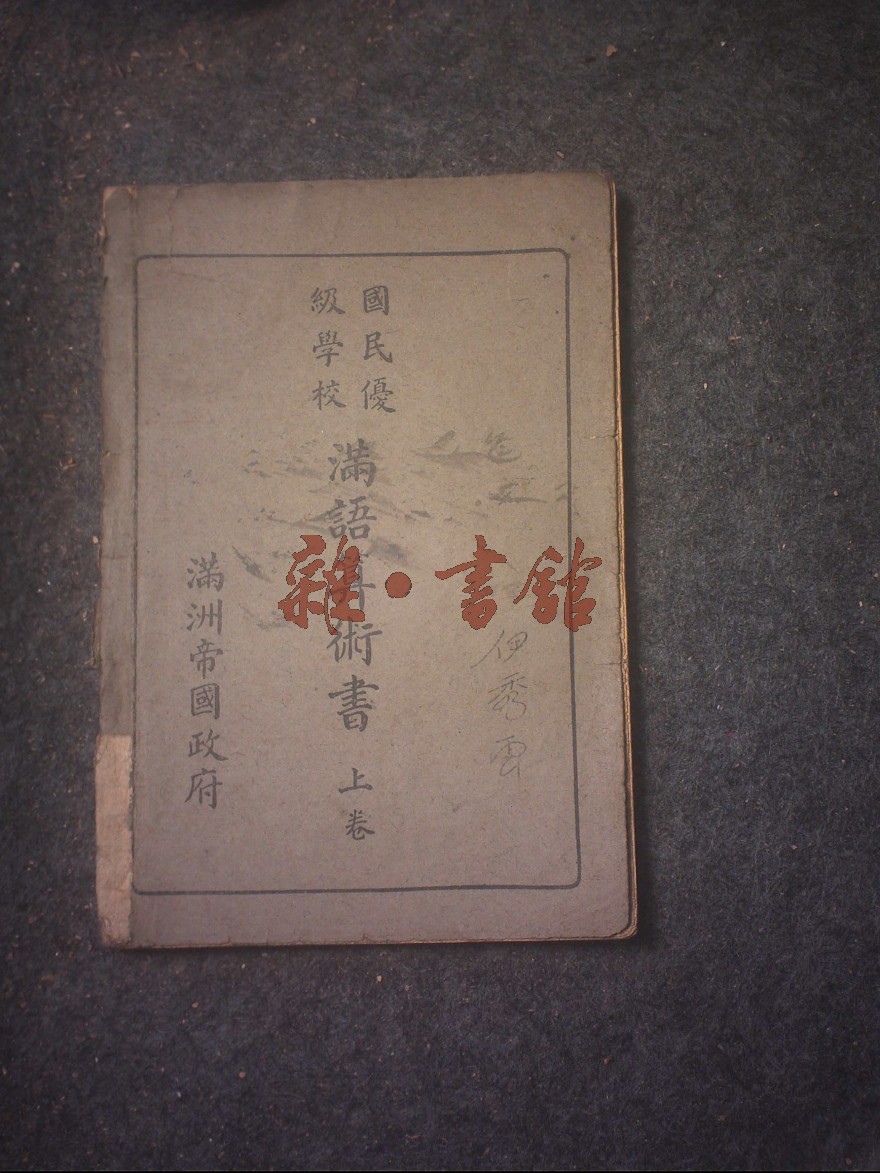 國民優
級學校
滿語算術書 上卷
滿洲帝國政府
伊秀雲
雜·書館